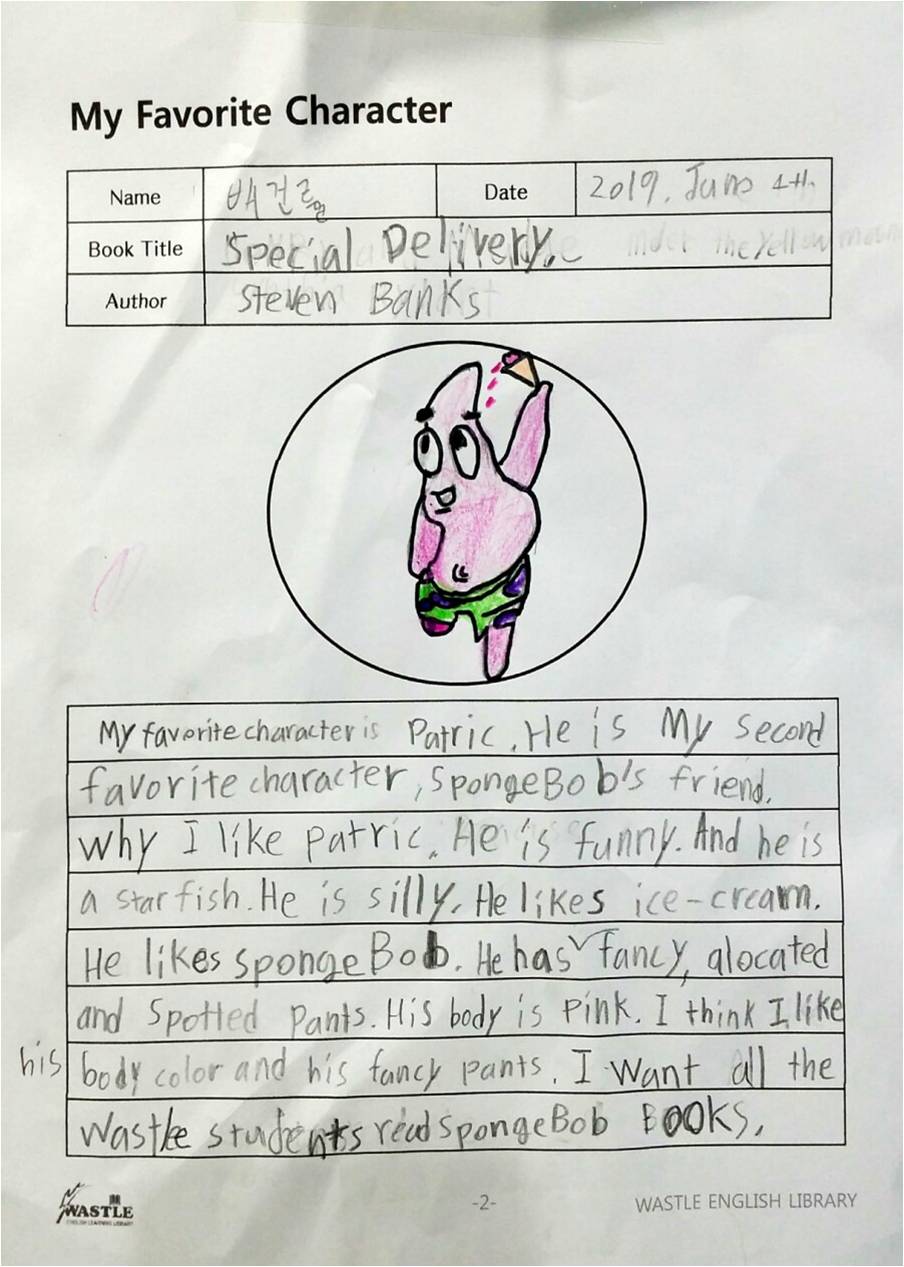 My Favorite Character
Name 배건률 Date 2019. June 4th
Book Title Special Delivery.
Author Steven Banks
My favorite character is Patric. He is My second
favorite character, SpongeBob's friend.
why I like patric. He is funny. And he is
a star fish. He is silly. He likes ice-cream.
He likes spongeBob. He has fancy, alocated
and Spotted Pants. His body is Pink. I think I like
his body color and his fancy pants. I want all the
Wastle students read SpongeBob BOOKS.
WASTLE
ENGLISH LEARNING LIBRARY
-2-
WASTLE ENGLISH LIBRARY